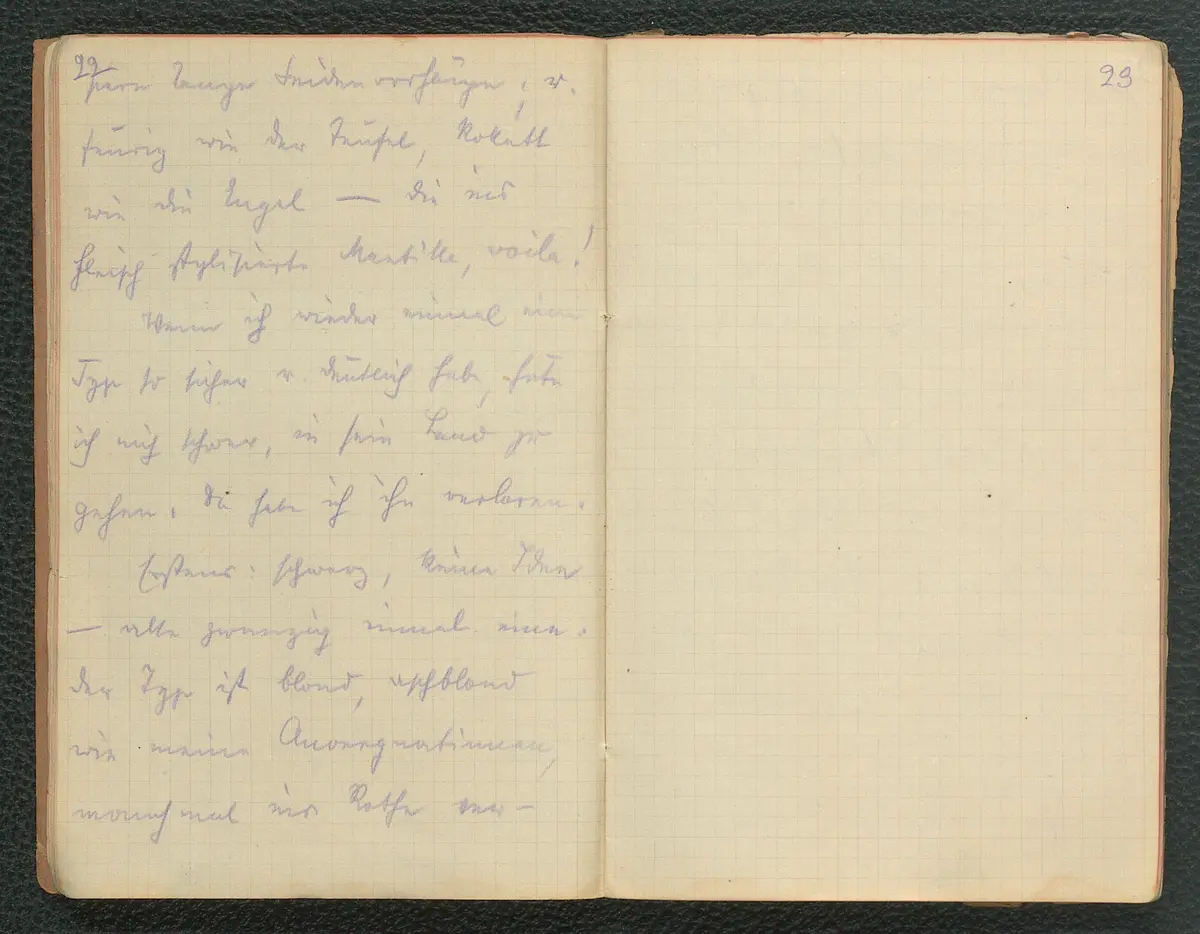 22
pern lange Seidenvorhänge; u.
feurig wie der Teufel, kokett
wie die Engel — die ins
Fleisch stylisierte Mantille, voila!
Wenn ich wieder einmal einen
Typ so sicher u. deutlich habe, hüte
ich mich schwer, in sein Land zu
gehen. Da habe ich ihn verloren.
Erstens: schwarz, keine Idee
— alle zwanzig einmal eine.
der Typ ist blond, aschblond
wie meine
manchmal ins Rothe ver-
23